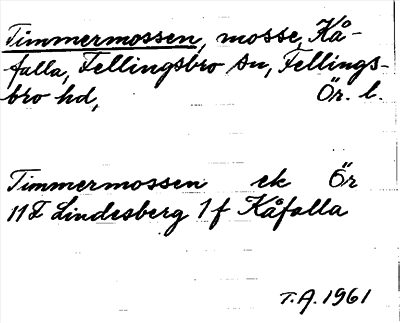 Timmermossen, mosse, Kå-
falla, Fellingsbro sn, Fellings-
bro hd, Ör. l.
Timmermossen ek Ör
11F Lindesberg 1f Kåfalla
T.A. 1961